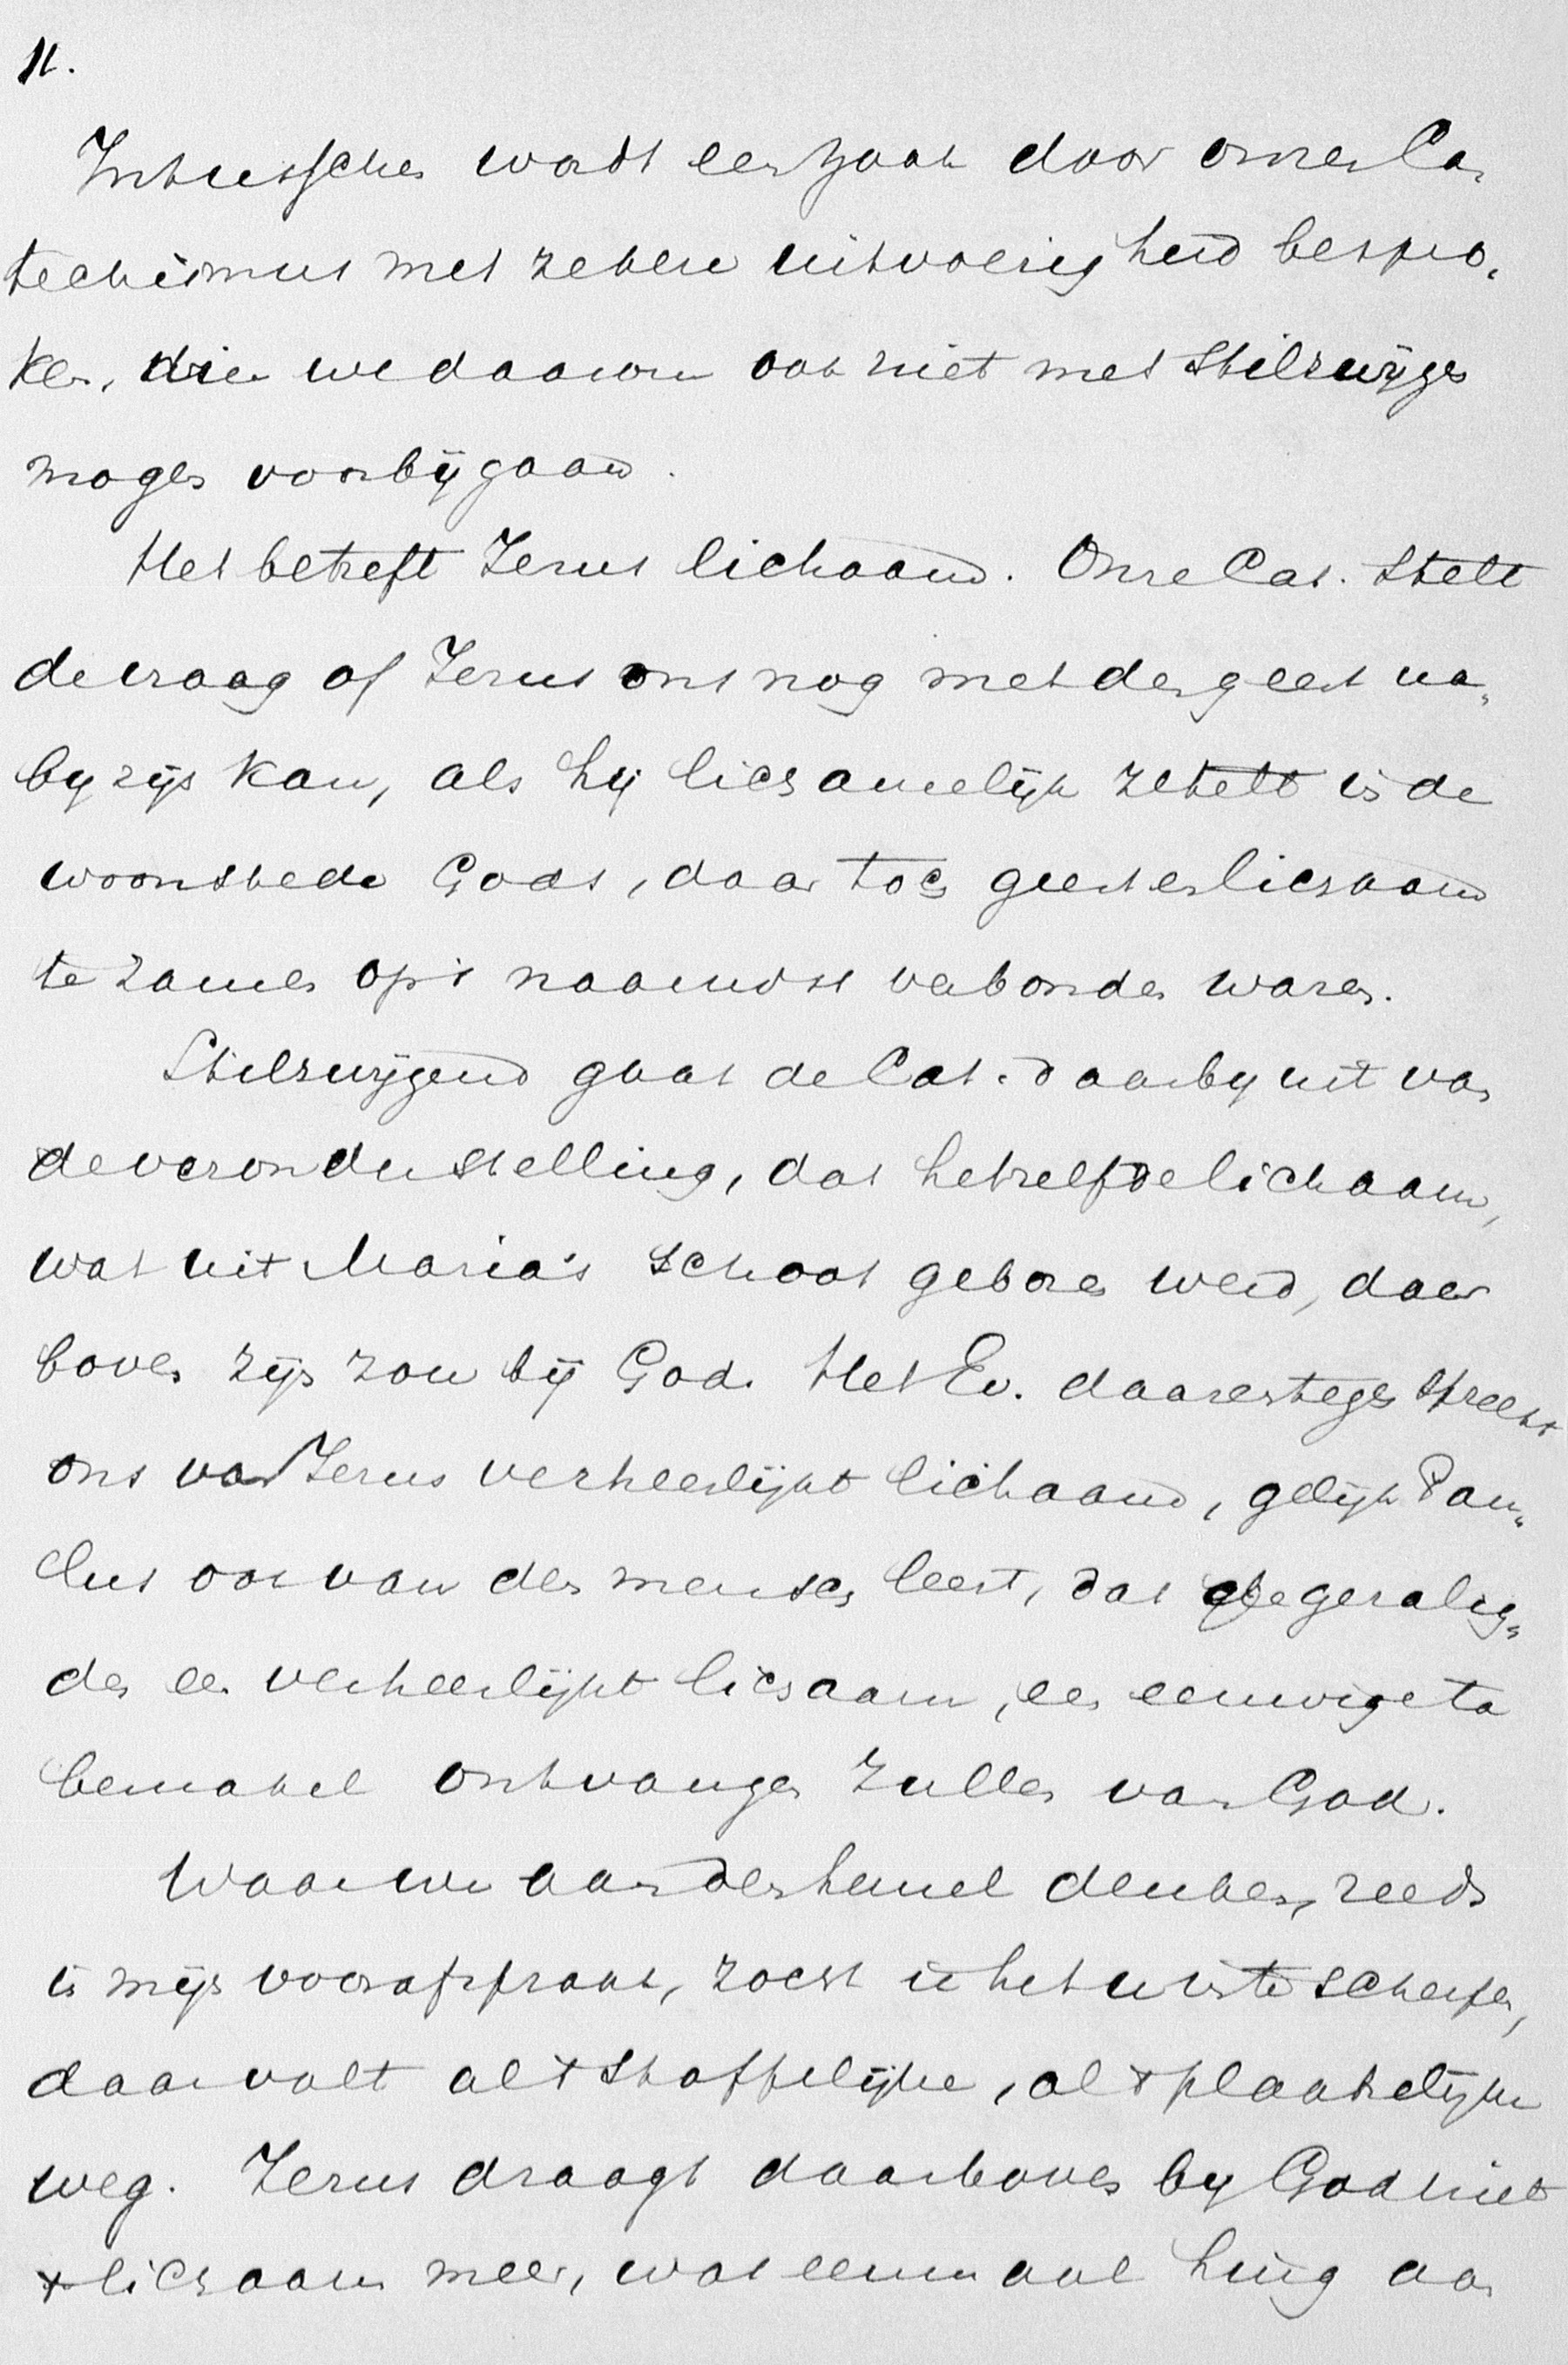 11.
Intusschen wordt een zaak door onzen Ca-
techismus met zekere uitvoerigheid bespro-
ken, dien we daarom ook niet met stilzwijgen
mogen voorbijgaan.
Het betreft Jezus lichaam. Onze Cat. stelt
de vraag of Jezus ons nog met den geest na-
by zijn kan, als hij lichamelijk zetelt in de
woonstede Gods, daar toch geest en lichaam
te zamen op 't naauwst verbonden waren.
Stilzwijgend gaat de Cat. daarby uit van
de veronderstelling, dat hetzelfde lichaam,
wat uit Maria's schoot geboren werd, daar
boven zijn zou bij God. Het Ev. daarentegen spreekt
ons van Jezus verheerlijkt lichaam, gelijk Pau-
lus ook van den mensch leert, dat de gezalig-
den een verheerlijkt lichaam, een eeuwige ta
bernakel ontvangen zullen van God.
Waar we aan den hemel denken, reeds
in mijn voorafspraak, zocht ik het uiteen te scherpen,
daar valt al 't stoffelijke, al 't plaatselijke
weg. Jezus draagt daarboven by God niet
't lichaam meer, wat eenmaal hing aan